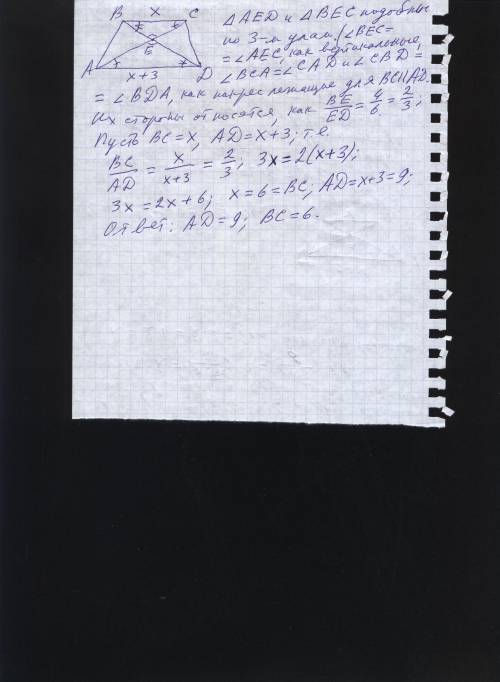 B x C
E
A D
x+3
△AED и △BEC подобные
по 3-м углам. (∠BEC=
=∠AEC, как вертикальные,
∠BCA=∠CAD и ∠CBD=
=∠BDA, как накрест лежащие для BC||AD.
Их стороны относятся, как BE/ED=4/6=2/3;
Пусть BC=x, AD=x+3; т.е.
BC/AD = x/x+3 = 2/3; 3x=2(x+3);
3x=2x+6; x=6=BC; AD=x+3=9;
Ответ: AD=9; BC=6.